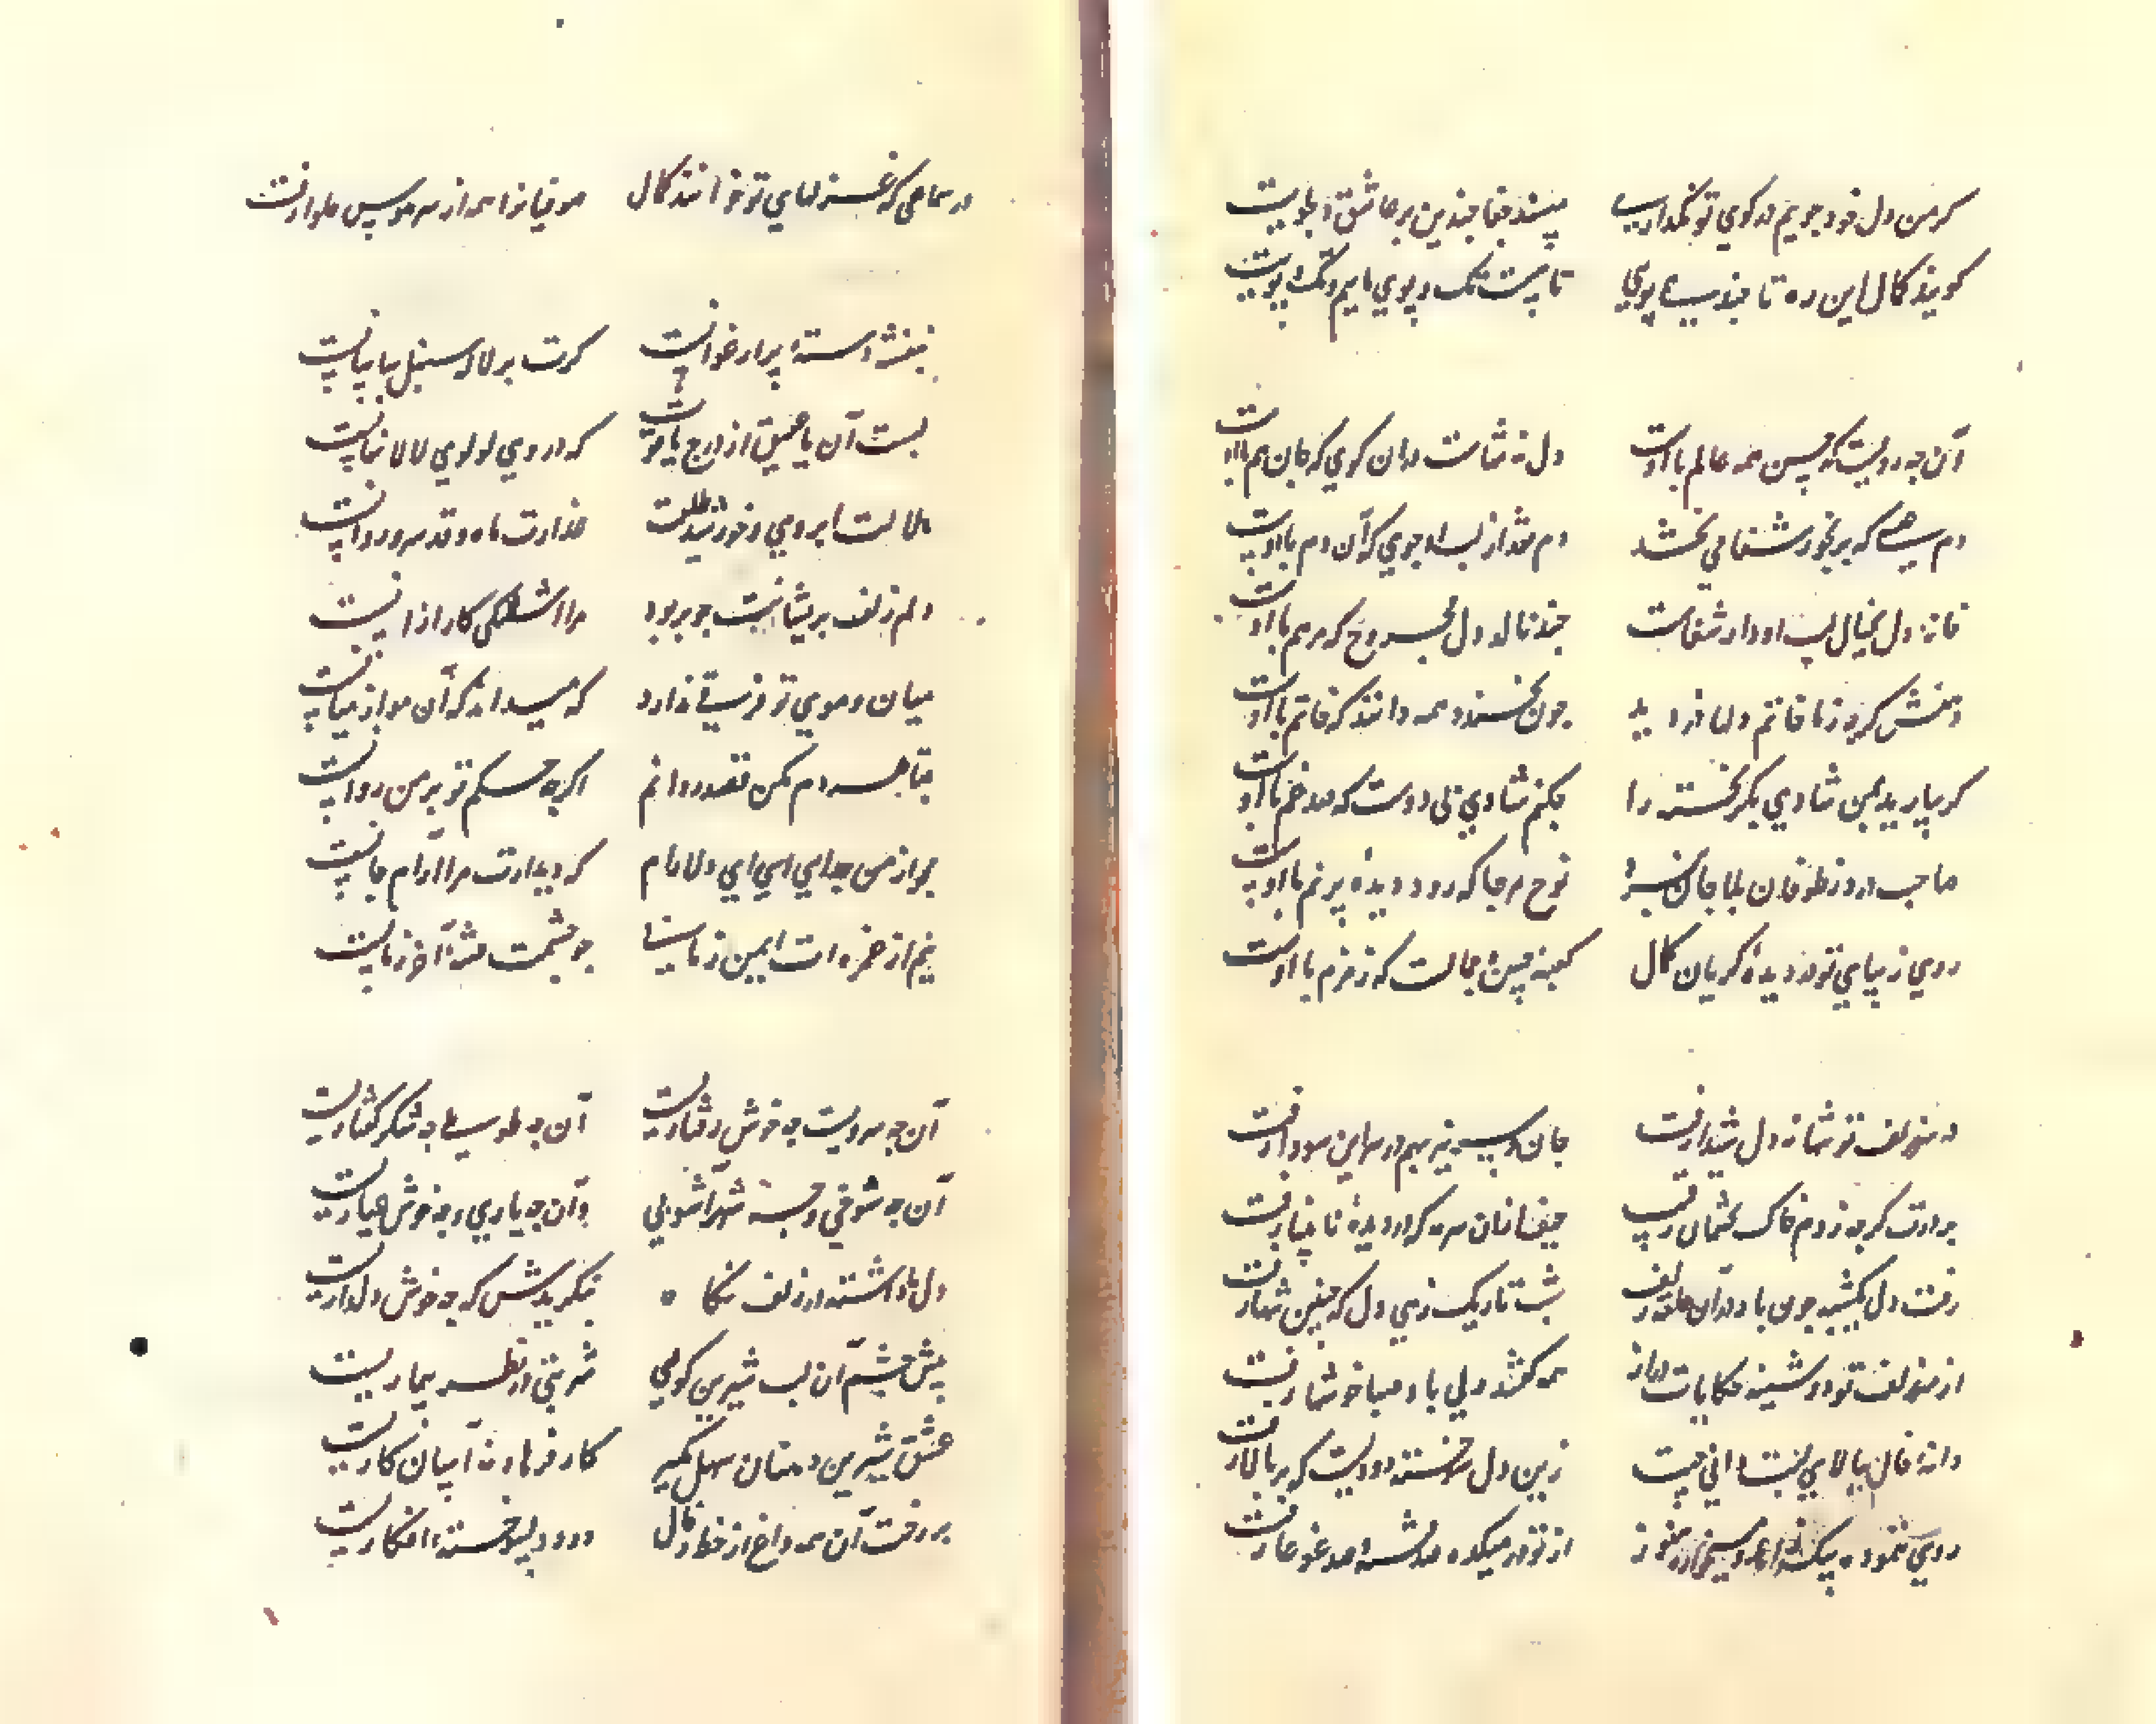 کر من دل خود جویم در کوی تو نگذارب مپسند جفا چندین بر عاشق دلجویت
کویند کمال این ره تا چند بسر پویی تا هست تک و پوی ماییم و تک و پویت
آن چه رویست که حسن همه عالم با اوست دل نه تنهاست در آن کوی که جان هم با اوست
دم عیسی که به رنجور شفا می بخشد دم نقد از لب او جوی که آن دم با اوست
خانهٔ دل بخیال لب او دار شفاست چند نالد دل مجروح که مرهم با اوست
دهنش کرچه ز ما خاتم دلها دزدید چون بخندد همه دانند که خاتم با اوست
کر بیارید بمن شادی بکر بخته را چکنم شادی بی دوست که صد غم با اوست
صاحب درد ز طوفان بلا جان نبرد نوح هر جا که رود دیدهٔ پر نم با اوست
روی زیبای تو در دیدهٔ کریان کمال کعبهٔ حسن و جمالست که زمزم با اوست
در سر زلف تو تنها نه دل شیدا رفت جان و سر نیز بهم در سر این سودا رفت
بر درت کرچه زدم خاک بچشمان رقیب حیف از آن سرمه که در دیدهٔ نابینا رفت
رفت دل نیم شب چون باد در آن حلقه زلف شب تاریک زهی دل که چنین تنها رفت
از سر زلف تو دوشینه حکایات دراز همه گفتند ولی باد صبا خوشها رفت
دانهٔ خال ببالای لبت دانی چیست زین دل سوخته دودیست که بر بالا رفت
روی ننموده از تو در میکده
در سماعی که غزلهای تو خوانند کمال صوفیانرا همه از سر هوس حلوا رفت
بنفشه دستهٔ بر ارغوانت کرت بر لاله سنبل سایبانست
لبست آن یا عقیق از درج یاقوت که در وی لولوی لالا نهانست
هلالت ابروی و خورشید طلعت عذارت ماه و قد سرو روانست
دلم زلف پریشانت چو بربود مرا آشفتگی کار از آنست
میان و موی تو فرقی ندارد که میداند که آن مو از میانست
بتا هر دم مکن قصد روانم اکرچه حکم تو بر من روانست
مجو از من جدایی ای دلارام که دیدارت مرا آرام جانست
نیم از غمزه ات ایمن زمانی چو چشمت فتنهٔ آخر زمانست
آن چه سرویست چه خوش رفتاریست آن چه طوطی چه شکر گفتاریست
آن چه شوخی و چه شهرآشوبی وآن چه یاری و چه خوش عیاریست
دل ما داشته در زلف نگاه بنکریدش که چه خوش دلداریست
پیش چشم آن لب شیرین کویی شربتی در نظر بیماریست
عشق شیرین دهنان سهل مگیر کار فرهاد نه آسان کاریست
بر رخت آن همه داغ از خط و خال دود دلسوختهٔ افکاریست